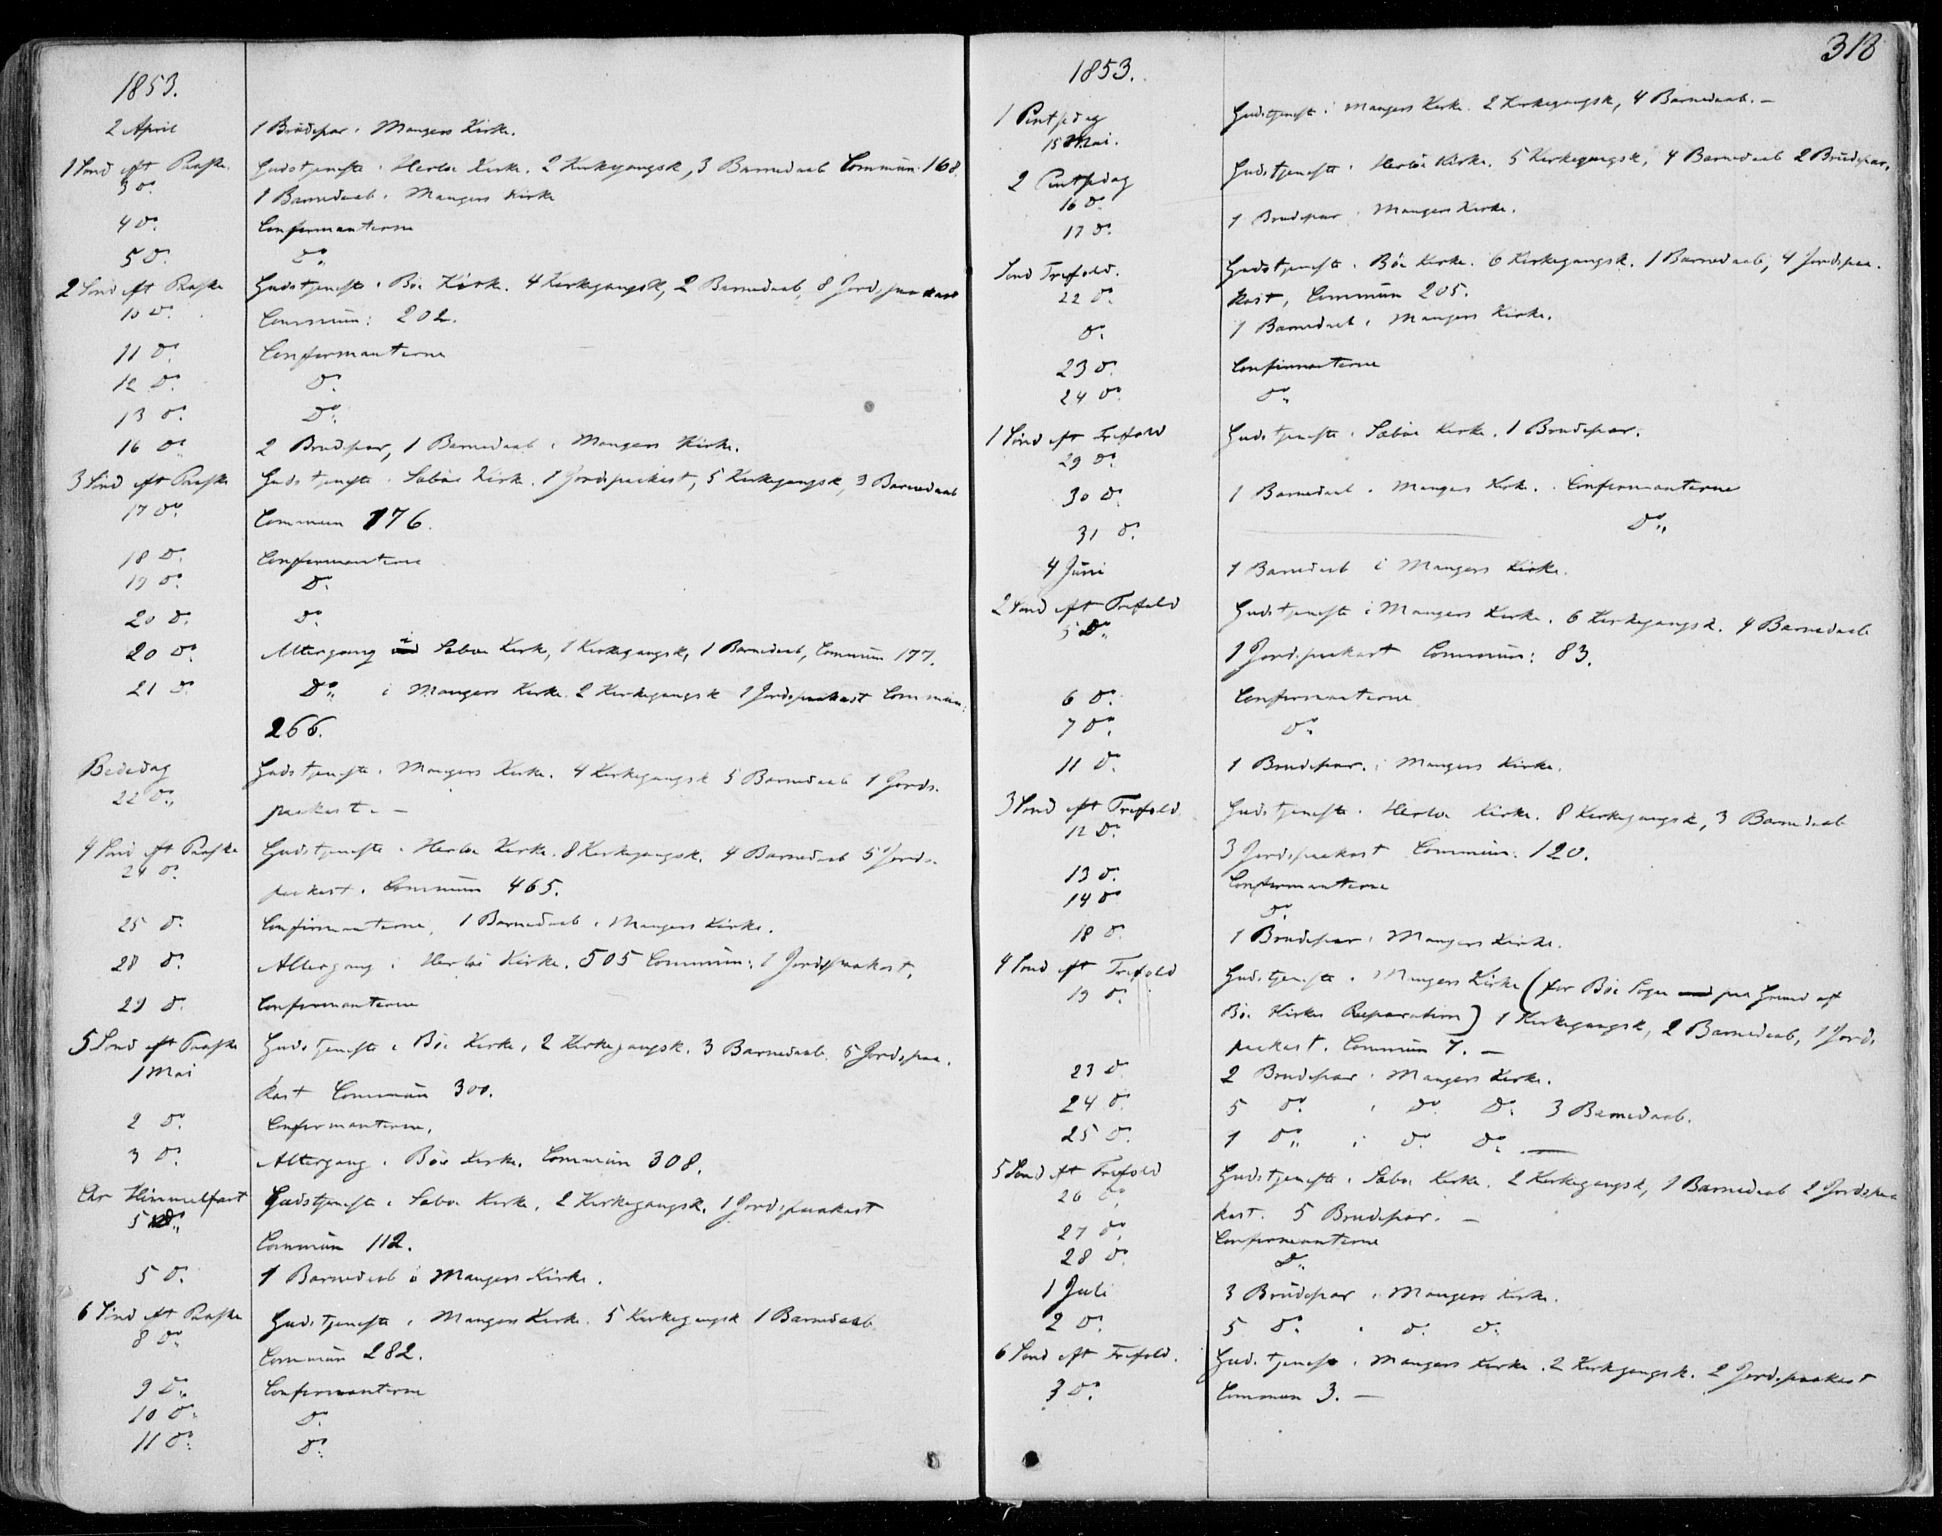 1853.
2 April 1 Brudepar i Mangers Kirke.
1 Sønd eft Paaske Gudstjeneste i Herlø Kirke. 2 Kirkegangsk, 3 Barnedaab Commun: 168.
3 do. 1 Barnedaab i Mangers Kirke
4 do. Confirmanterne
5 do. do.
2 Sønd eft Paaske Gudstjeneste i Bøe Kirke. 4 Kirkegangsk, 2 Barnedaab, 8 Jordspaakast
10 do. Commun: 202.
11 do. Confirmanterne
12 do. do.
13 do. do.
16 do. 2 Brudepar, 1 Barnedaab i Mangers Kirke.
3 Sønd eft Paaske Gudstjeneste i Sæbøe Kirke. 1 Jordspaakast, 5 Kirkegangsk, 3 Barnedaab
17 do. Commun 176.
18 do. Confirmanterne
19 do. do.
20 do. do.
20 do. Altergang i Sæbøe Kirke, 1 Kirkegangsk, 1 Barnedaab, Commun 177.
21 do. do. i Mangers Kirke. 2 Kirkegangsk 1 Jordspaakast Commun:
266.
Bededag Gudstjeneste i Mangers Kirke. 4 Kirkegangsk 5 Barnedaab 1 Jords-
22 do. paakast. —
4 Sønd eft Paaske Gudstjeneste i Herløe Kirke. 8 Kirkegangsk. 4 Barnedaab 5 Jords-
24 do. paakast. Commun 465.
25 do. Confirmanterne, 1 Barnedaab i Mangers Kirke.
28 do. Altergang i Herløe Kirke. 505 Commun: 1 Jordspaakast.
29 do. Confirmanterne
5 Sønd eft Paaske Gudstjeneste i Bøe Kirke, 2 Kirkegangsk. 3 Barnedaab. 5 Jordspaa-
1 Mai kast Commun 300.
2 do. Confirmanterne.
3 do. Altergang i Bøe Kirke. Commun 308.
Chr Himmelfart Gudstjeneste i Sæbøe Kirke, 2 Kirkegangsk. 1 Jordspaakast
5 do. Commun 112.
5 do. 1 Barnedaab i Mangers Kirke.
6 Sønd eft Paaske Gudstjeneste i Mangers Kirke. 5 Kirkegangsk 1 Barnedaab
8 do. Commun 282.
9 do. Confirmanterne
10 do. do.
11 do. do.
318
1853.
1 Pintsedag Gudstjeneste i Mangers Kirke. 2 Kirkegangsk, 4 Barnedaab. —
15 Mai.
2 Pintsedag Gudstjeneste i Herløe Kirke. 5 Kirkegangsk, 4 Barnedaab 2 Brudepar.
16 do.
17 do. 1 Brudepar i Mangers Kirke.
Sønd Trefold. Gudstjeneste i Bøe Kirke. 6 Kirkegangsk. 1 Barnedaab, 4 Jordspaa-
22 do. kast, Commun 205.
do. 1 Barnedaab i Mangers Kirke.
23 do. Confirmanterne
24 do. do.
1 Sønd eft Trefold Gudstjeneste i Sæbøe Kirke. 1 Brudepar.
29 do.
30 do. 1 Barnedaab i Mangers Kirke. Confirmanterne
31 do. do.
4 Juni 1 Barnedaab i Mangers Kirke.
2 Sønd eft Trefold Gudstjeneste i Mangers Kirke. 6 Kirkegangsk. 4 Barnedaab
5 do. 1 Jordspaakast Commun: 83.
6 do. Confirmanterne
7 do. do.
11 do. 1 Brudepar i Mangers Kirke.
3 Sønd eft Trefold Gudstjeneste i Herløe Kirke. 8 Kirkegangsk, 3 Barnedaab
12 do. 3 Jordspaakast Commun: 120.
13 do. Confirmanterne
14 do do.
18 do. 1 Brudepar i Mangers Kirke.
4 Sønd eft Trefold Gudstjeneste i Mangers Kirke (for Bøe Sogn paa Grund af
19 do. Bøe Kirkes Reparation) 1 Kirkegangsk, 2 Barnedaab, 1 Jords
paakast. Commun 7. —
23 do. 2 Brudepar i Mangers Kirke.
24 do. 5 do. i do. do. 3 Barnedaab.
25 do. 1 do. i do. do. —
5 Sønd eft Trefold Gudstjeneste i Sæbøe Kirke. 2 Kirkegangsk, 1 Barnedaab 2 Jordspaa
26 do. kast. 5 Brudepar. —
27 do. Confirmanterne
28 do. do.
1 Juli 3 Brudepar i Mangers Kirke.
2 do. 5 do. i do. do.
6 Sønd eft Trefold. Gudstjeneste i Mangers Kirke. 2 Kirkegangsk. 2 Jordspaakast
3 do. Commun 3. —